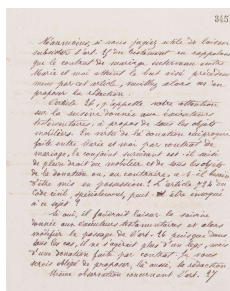 345
Néanmoins, si vous jugiez utile de laisser
subsister l'art. 25 du testament en rappelant
que le contrat de mariage intervenu entre
Marie et moi atteint le but visé précédem-
ment par cet article, veuillez alors m'en
proposer la rédaction.
L'article 26, j'appelle votre attention
sur la saisine donnée aux exécuteurs
testamentaires, à propos de tous les objets
mobiliers. En vertu de la donation réciproque
faite entre Marie et moi par contrat de
mariage, le conjoint survivant est-il saisi
de plein droit du mobilier et de tous les objets
de la donation ou, au contraire, a-t-il besoin
d'être mis en possession? L'article 724 du
code civil, spécialement, peut être invoqué
à ce sujet?
Si oui, il faudrait laisser la saisine
donnée aux exécuteurs testamentaires et alors
modifier le passage de l'art. 26 puisque dans
tous les cas, il ne s'agirait plus d'un legs, mais
d'une donation faite par contrat. Je vous
serais obligé de proposer, la rédaction
Même observation concernant l'art. 27